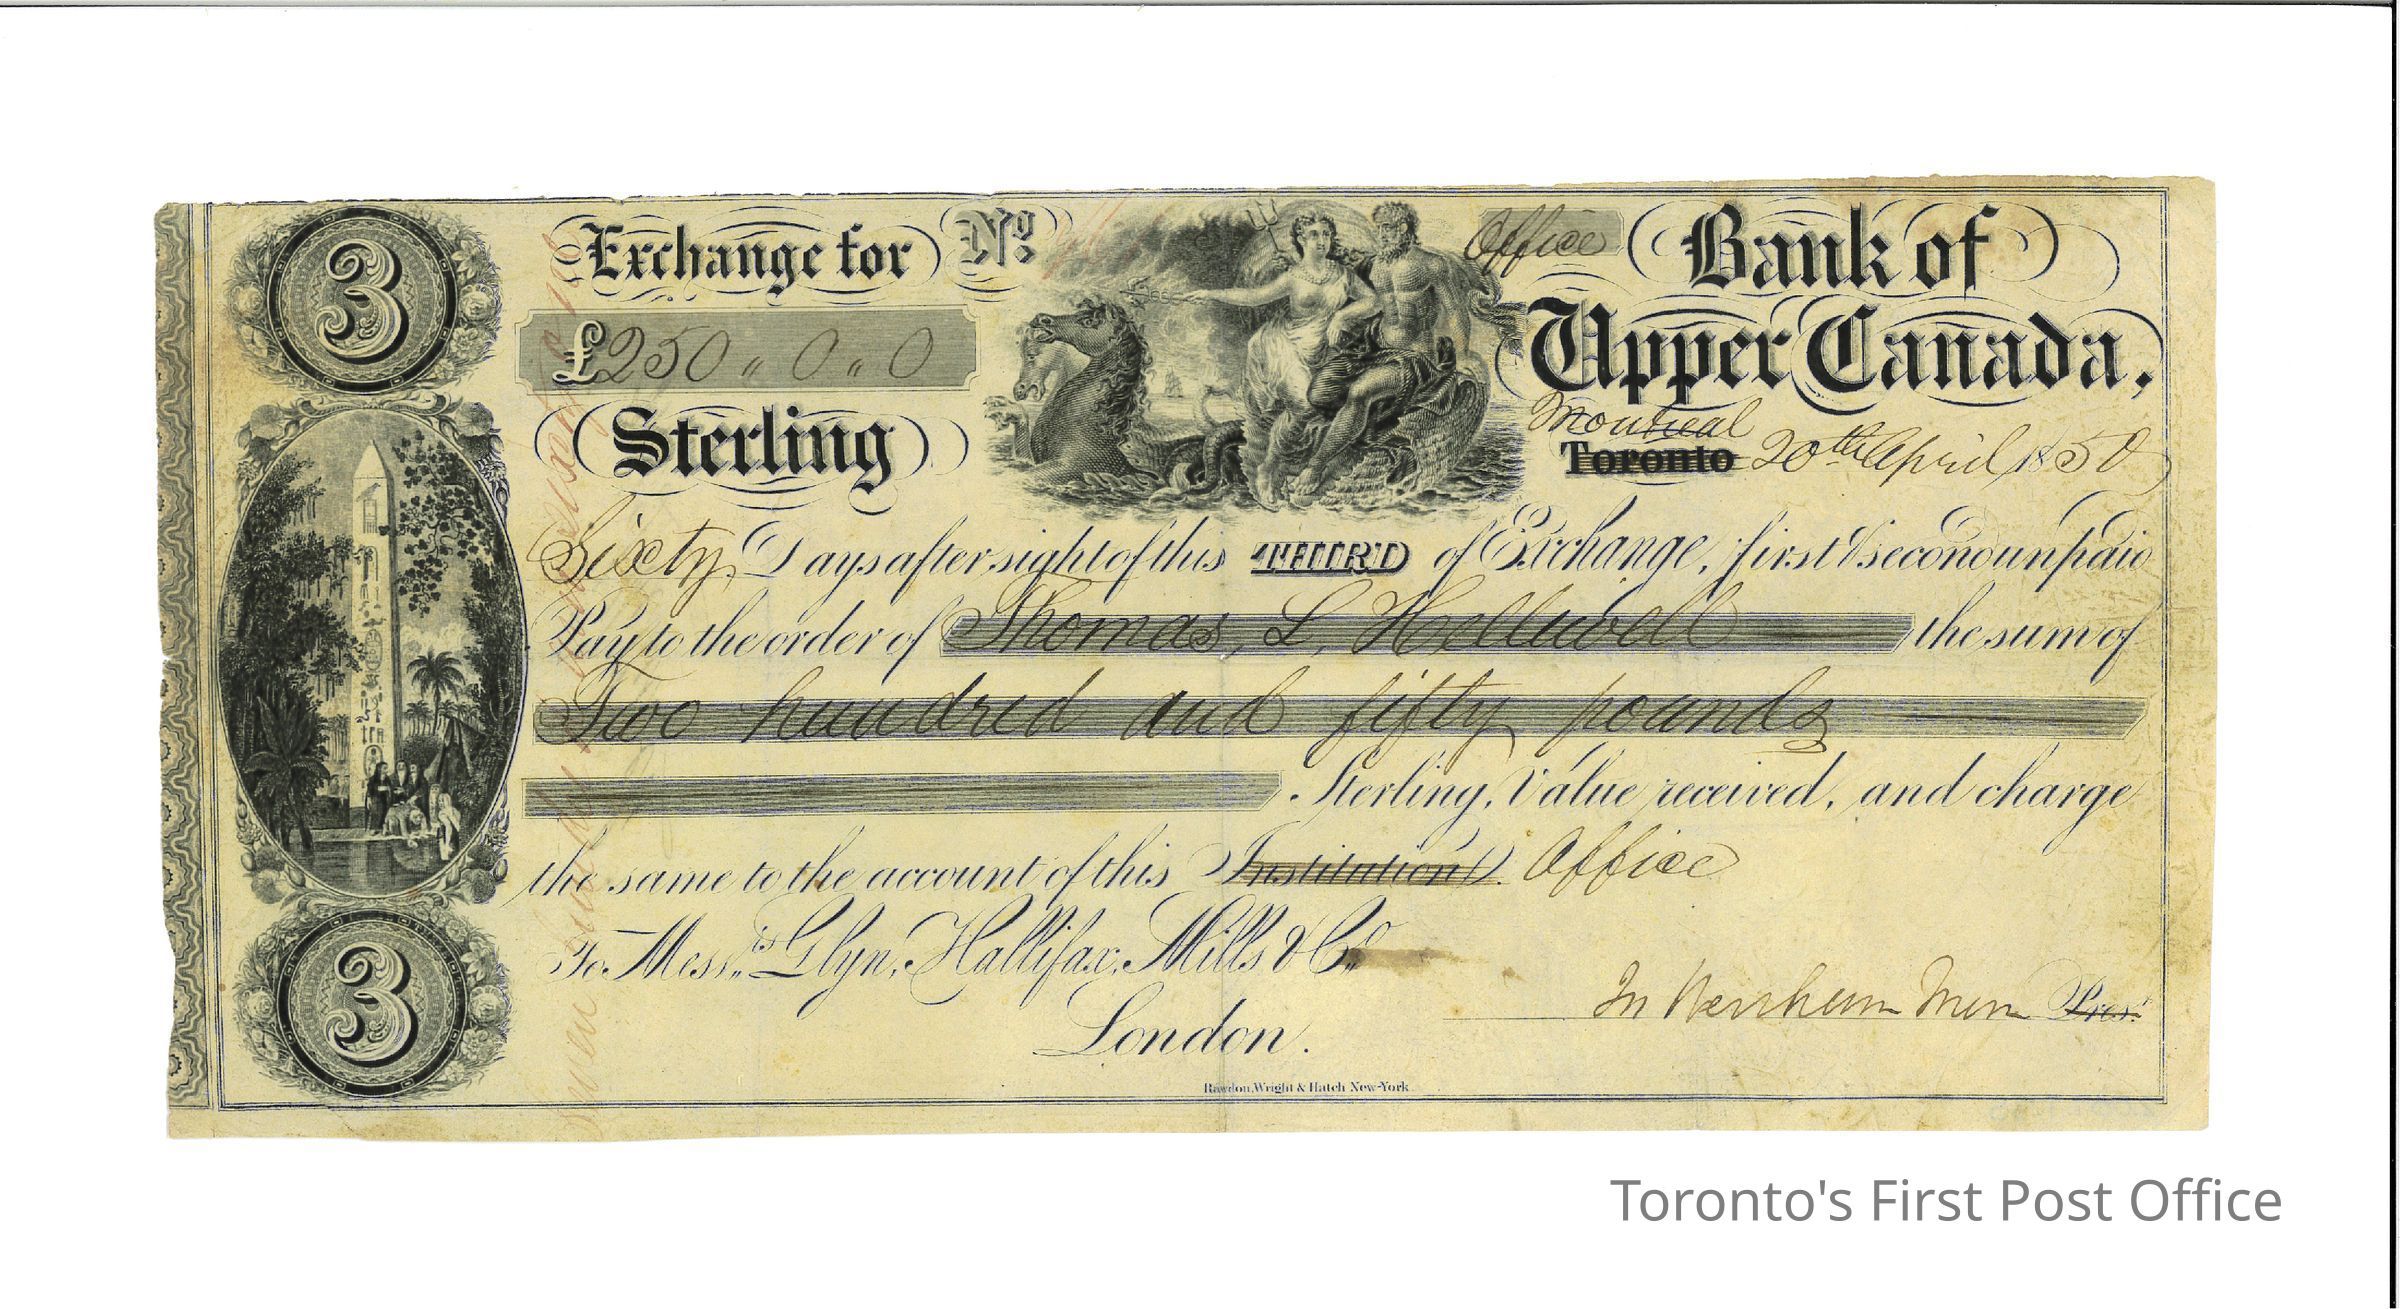 3
Exchange for
Nº
£250 " 0 " 0
Sterling
Office
Bank of
Upper Canada.
Montreal
Toronto 20th April 1850
Sixty Days after sight of this THIRD of Exchange, first & second unpaid
Pay to the order of Thomas L. Helliwell the sum of
Two hundred and fifty pounds
Sterling, Value received, and charge
the same to the account of this Institution. Office
To Mess.rs Glyn, Hallifax, Mills & Co.
London.
Pres.t
3
Rawdon, Wright & Hatch New-York.
Toronto's First Post Office